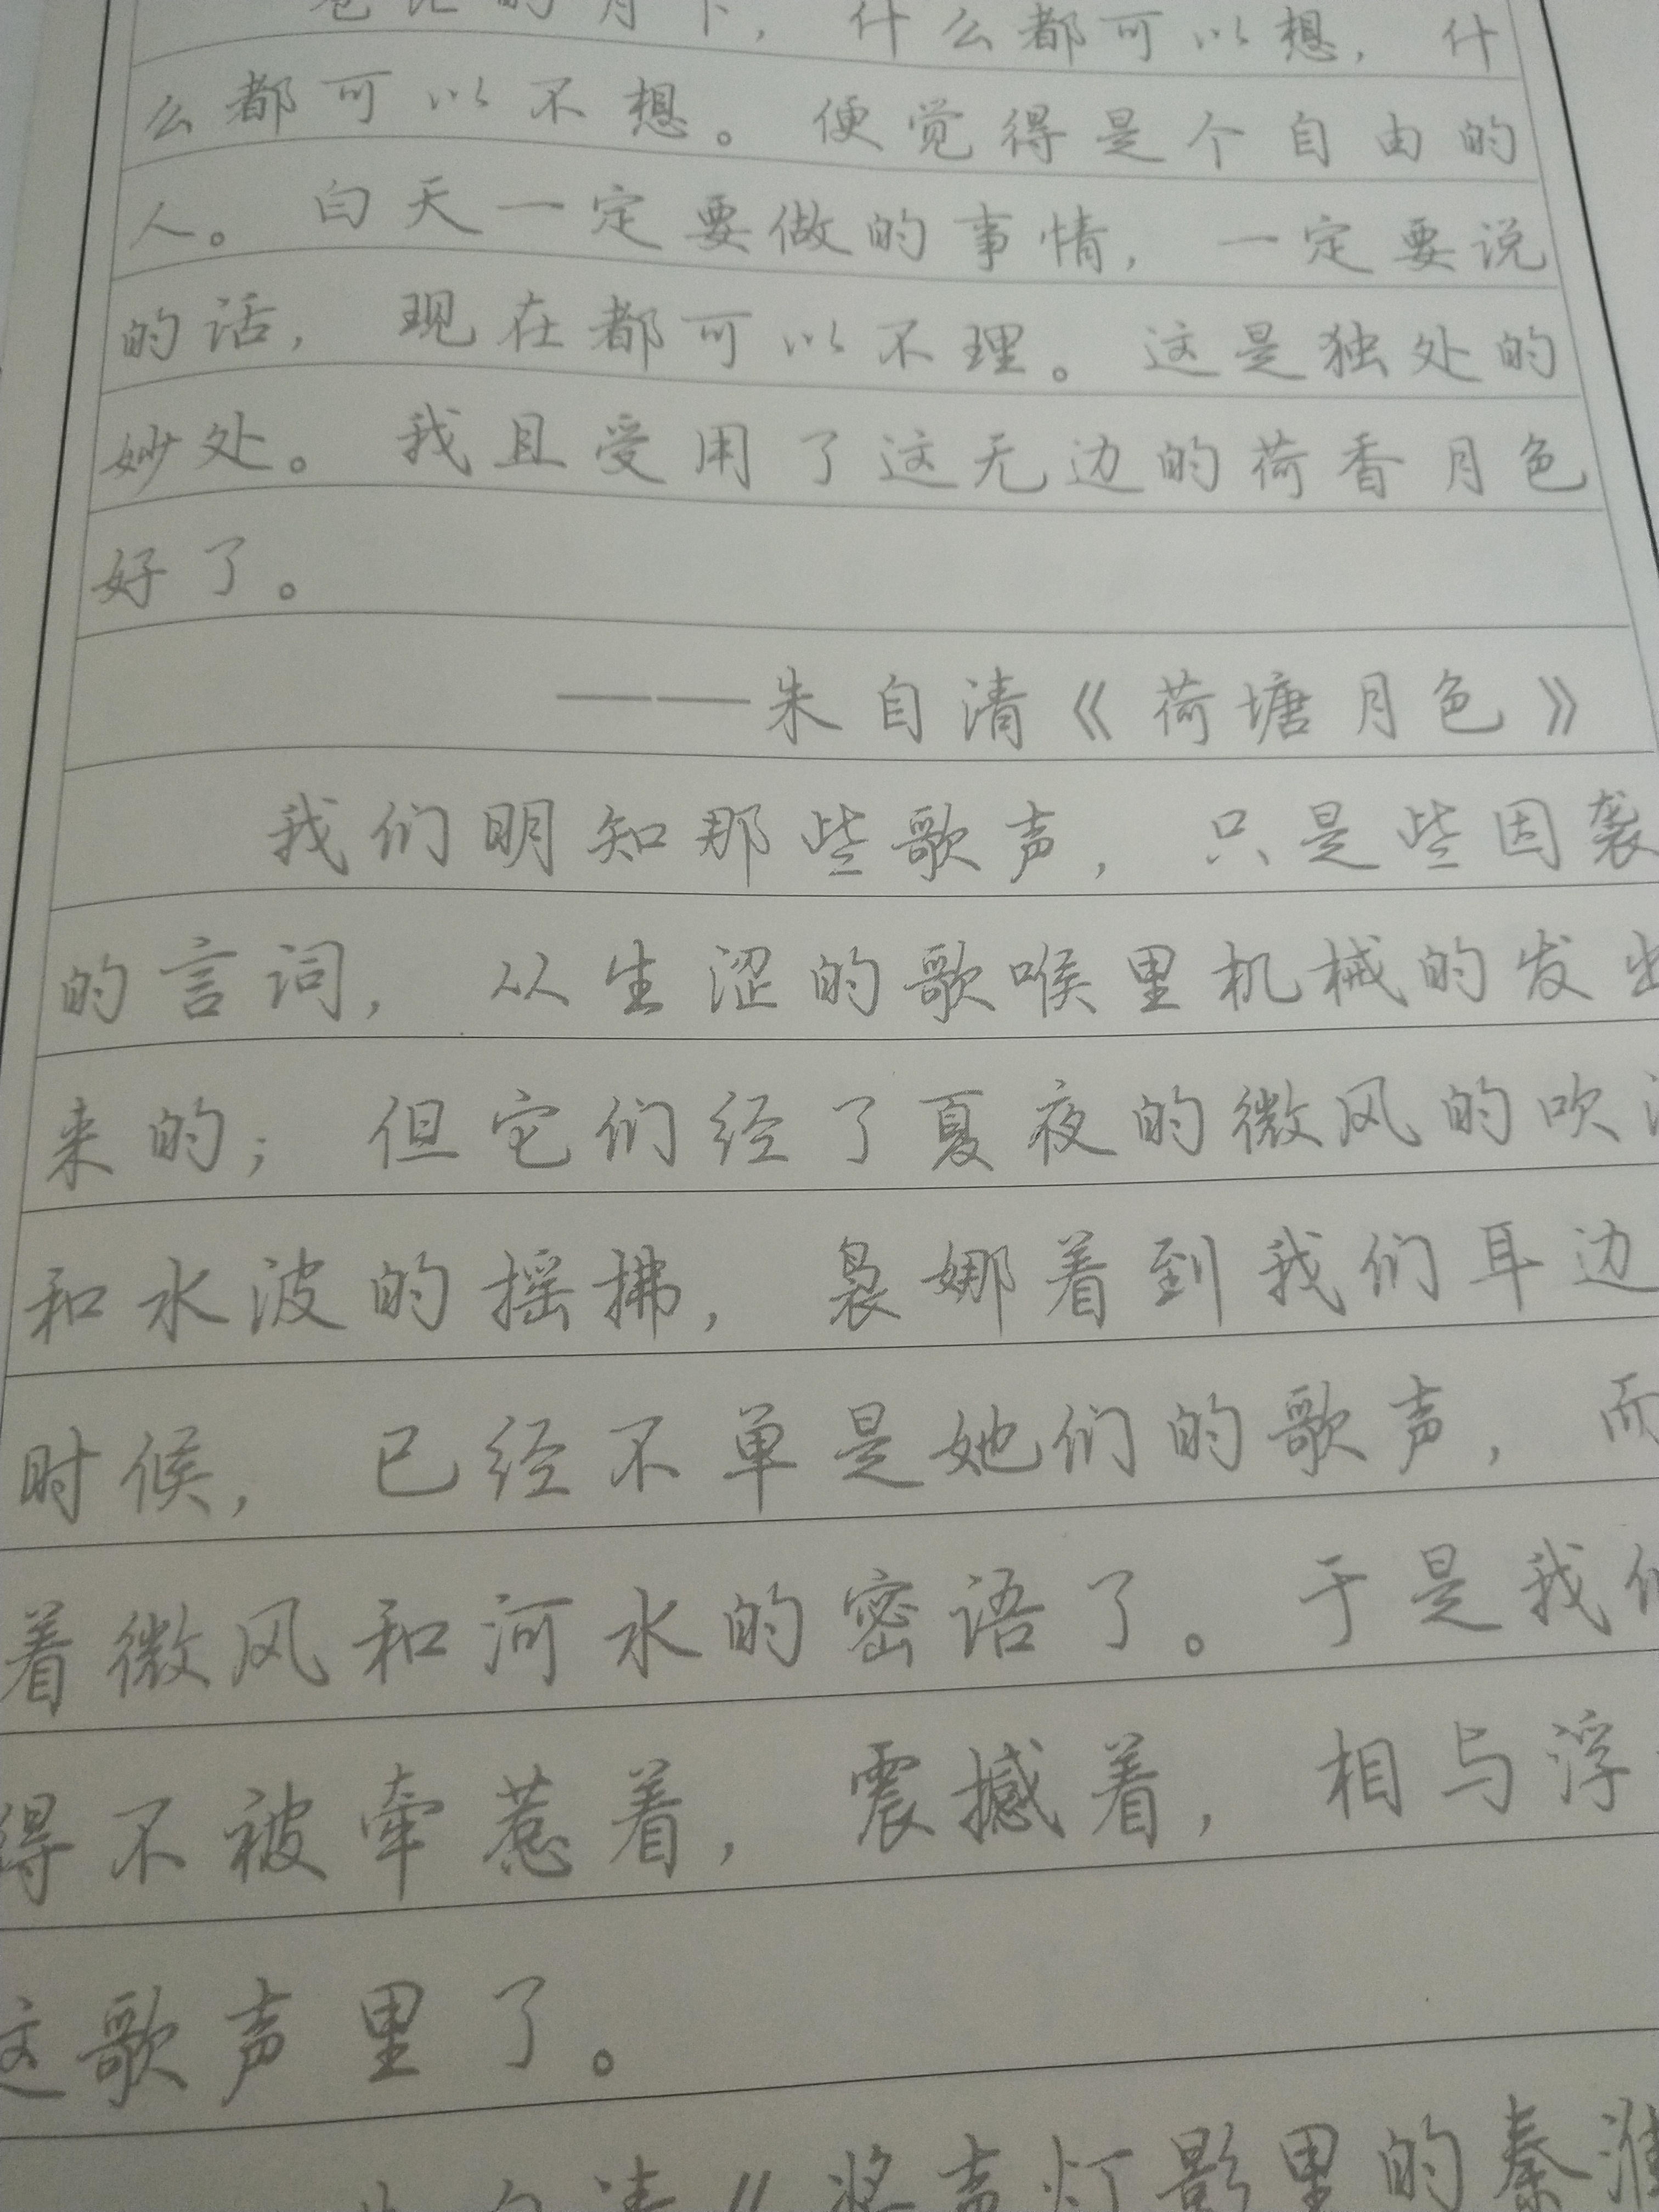 的月下，什么都可以想，什
么都可以不想。便觉得是个自由的
人。白天一定要做的事情，一定要说
的话，现在都可以不理。这是独处的
妙处。我且受用了这无边的荷香月色
好了。
——朱自清《荷塘月色》
我们明知那些歌声，只是些因袭
的言词，从生涩的歌喉里机械的发出
来的；但它们经了夏夜的微风的吹
和水波的摇拂，袅娜着到我们耳边
时候，已经不单是她们的歌声，而
着微风和河水的密语了。于是我们
得不被牵惹着，震撼着，相与浮
这歌声里了。
朱自清《桨声灯影里的秦淮